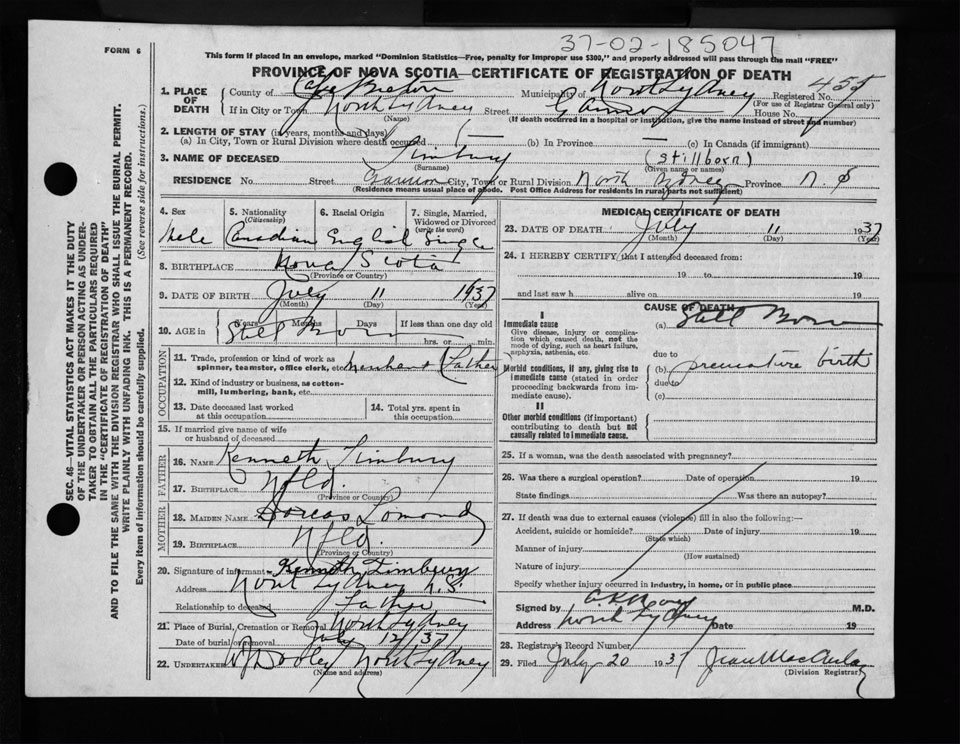 37-02-185047
FORM 6
This form if placed in an envelope, marked "Dominion Statistics—Free, penalty for improper use $300," and properly addressed will pass through the mail "FREE"
PROVINCE OF NOVA SCOTIA—CERTIFICATE OF REGISTRATION OF DEATH
1. PLACE OF DEATH
County of Cape Breton Municipality of North Sydney Registered No. 455
(For use of Registrar General only)
If in City or Town North Sydney Street House No.
(Name) (If death occurred in a hospital or institution, give the name instead of street and number)
2. LENGTH OF STAY (in years, months and days)
(a) In City, Town or Rural Division where death occurred (b) In Province (c) In Canada (if immigrant)
3. NAME OF DECEASED Timbury (stillborn)
(Surname) (Given name or names)
RESIDENCE No. Street City, Town or Rural Division North Sydney Province N.S
(Residence means usual place of abode. Post Office Address for residents in rural parts not sufficient)
4. Sex
5. Nationality (Citizenship)
6. Racial Origin
7. Single, Married, Widowed or Divorced (write the word)
Male Canadian English Single
8. BIRTHPLACE Nova Scotia
(Province or Country)
9. DATE OF BIRTH July 11 1937
(Month) (Day) (Year)
10. AGE in Years Months Days If less than one day old
Still Born hrs. or min.
OCCUPATION
11. Trade, profession or kind of work as spinner, teamster, office clerk, etc. Merchant (Father)
12. Kind of industry or business, as cotton-mill, lumbering, bank, etc.
13. Date deceased last worked at this occupation
14. Total yrs. spent in this occupation
15. If married give name of wife or husband of deceased
FATHER
16. NAME Kenneth Timbury
17. BIRTHPLACE Nfld.
(Province or Country)
MOTHER
18. MAIDEN NAME Dorcas Lomond
19. BIRTHPLACE Nfld.
(Province or Country)
20. Signature of informant Kenneth Timbury
Address North Sydney N.S.
Relationship to deceased Father
21. Place of Burial, Cremation or Removal North Sydney
Date of burial or removal July 12/37
22. UNDERTAKER W J Dooley North Sydney
(Name and address)
MEDICAL CERTIFICATE OF DEATH
23. DATE OF DEATH July 11 1937
(Month) (Day) (Year)
24. I HEREBY CERTIFY that I attended deceased from:
19 to 19
and last saw h alive on 19
CAUSE OF DEATH
I
Immediate cause
Give disease, injury or complication which caused death, not the mode of dying, such as heart failure, asphyxia, asthenia, etc.
(a) Still Born
due to
Morbid conditions, if any, giving rise to immediate cause (stated in order proceeding backwards from immediate cause).
(b) premature birth
due to
(c)
II
Other morbid conditions (if important) contributing to death but not causally related to immediate cause.
25. If a woman, was the death associated with pregnancy?
26. Was there a surgical operation? Date of operation 19
State findings Was there an autopsy?
27. If death was due to external causes (violence) fill in also the following:—
Accident, suicide or homicide? Date of injury 19
(State which)
Manner of injury
(How sustained)
Nature of injury
Specify whether injury occurred in industry, in home, or in public place
Signed by M.D.
Address North Sydney Date 19
28. Registrar's Record Number
29. Filed July 20 1937 Jean MacAulay
(Division Registrar)
SEC. 46—VITAL STATISTICS ACT MAKES IT THE DUTY
OF THE UNDERTAKER OR PERSON ACTING AS UNDER-
TAKER TO OBTAIN ALL THE PARTICULARS REQUIRED
IN THE "CERTIFICATE OF REGISTRATION OF DEATH"
AND TO FILE THE SAME WITH THE DIVISION REGISTRAR WHO SHALL ISSUE THE BURIAL PERMIT.
WRITE PLAINLY WITH UNFADING INK. THIS IS A PERMANENT RECORD.
Every item of information should be carefully supplied. (See reverse side for instructions.)